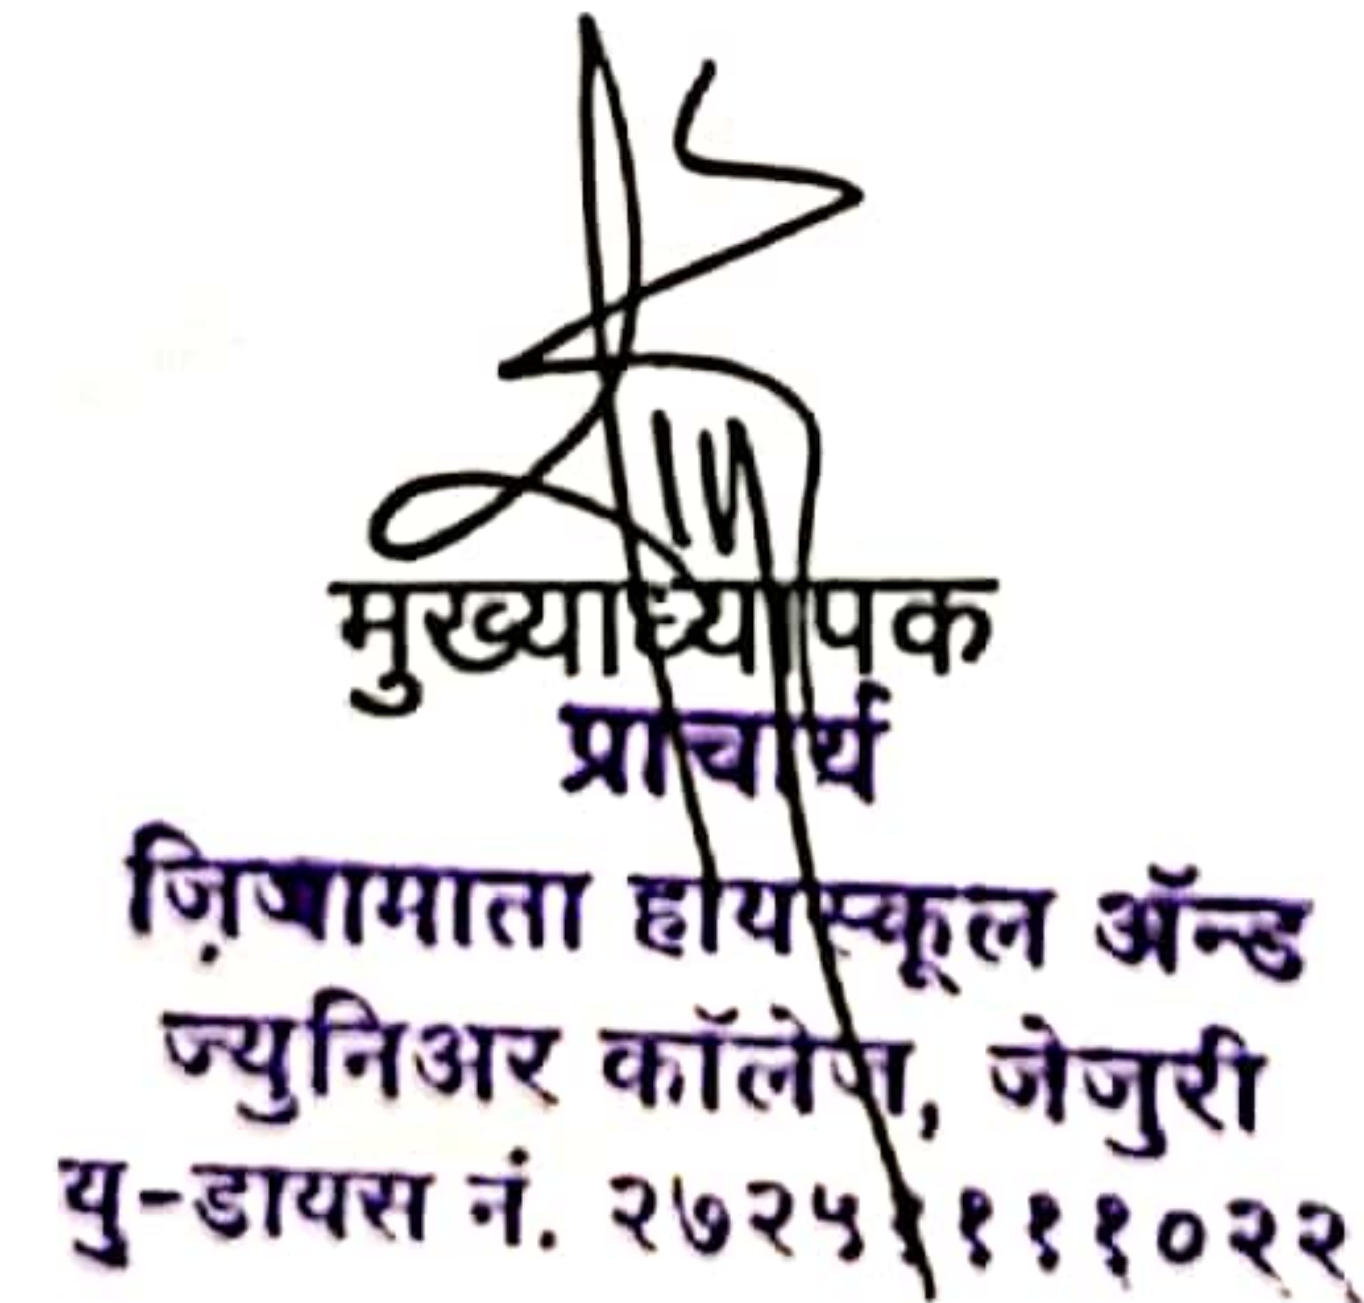 मुख्याध्यापक
प्राचार्य
जिजामाता हायस्कूल ॲन्ड
ज्युनिअर कॉलेज, जेजुरी
यु-डायस नं. २७२५११११०२२